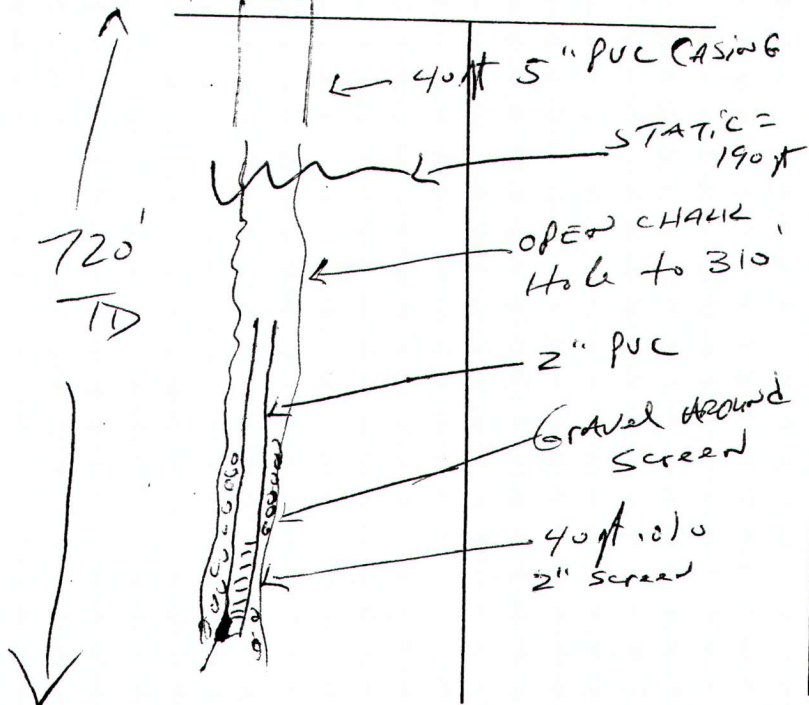 40ft 5" PVC CASING
STATIC =
190ft
720'
TD
OPEN CHALK
Hole to 310'
2" PVC
Gravel Around
Screen
40ft .010
2" Screen